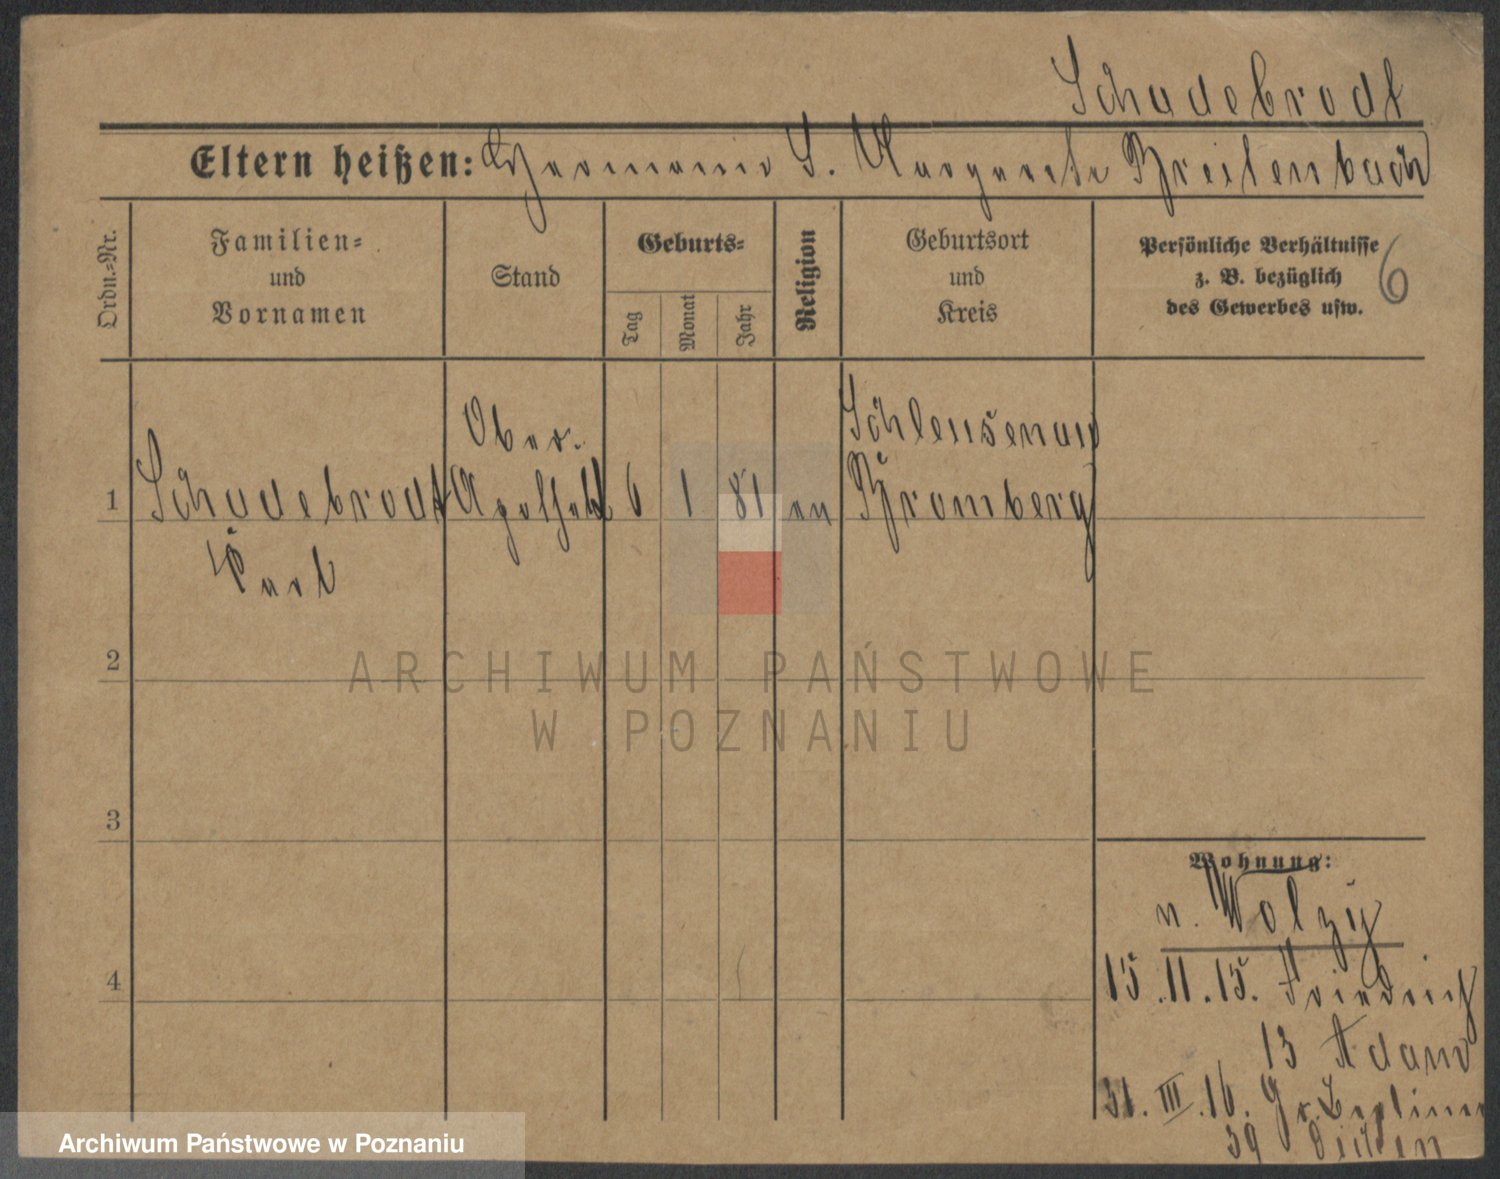 Schadebrodt
Eltern heißen: Hermann S. Margarete Breitenbach
Ordn.=Nr.
Familien=
und
Vornamen
Stand
Geburts=
Tag
Monat
Jahr
Religion
Geburtsort
und
Kreis
Persönliche Verhältnisse
z. B. bezüglich
des Gewerbes usw.
6
1
Schadebrodt
Carl
Ober-
6
1
81
ev
Schleusenau
Bromberg
2
3
4
Wohnung:
n. Wolzig
15.11.15. Friedrich
13 Adam
31.III.16. Gr. Berliner
39
ARCHIWUM PAŃSTWOWE
W POZNANIU
Archiwum Państwowe w Poznaniu